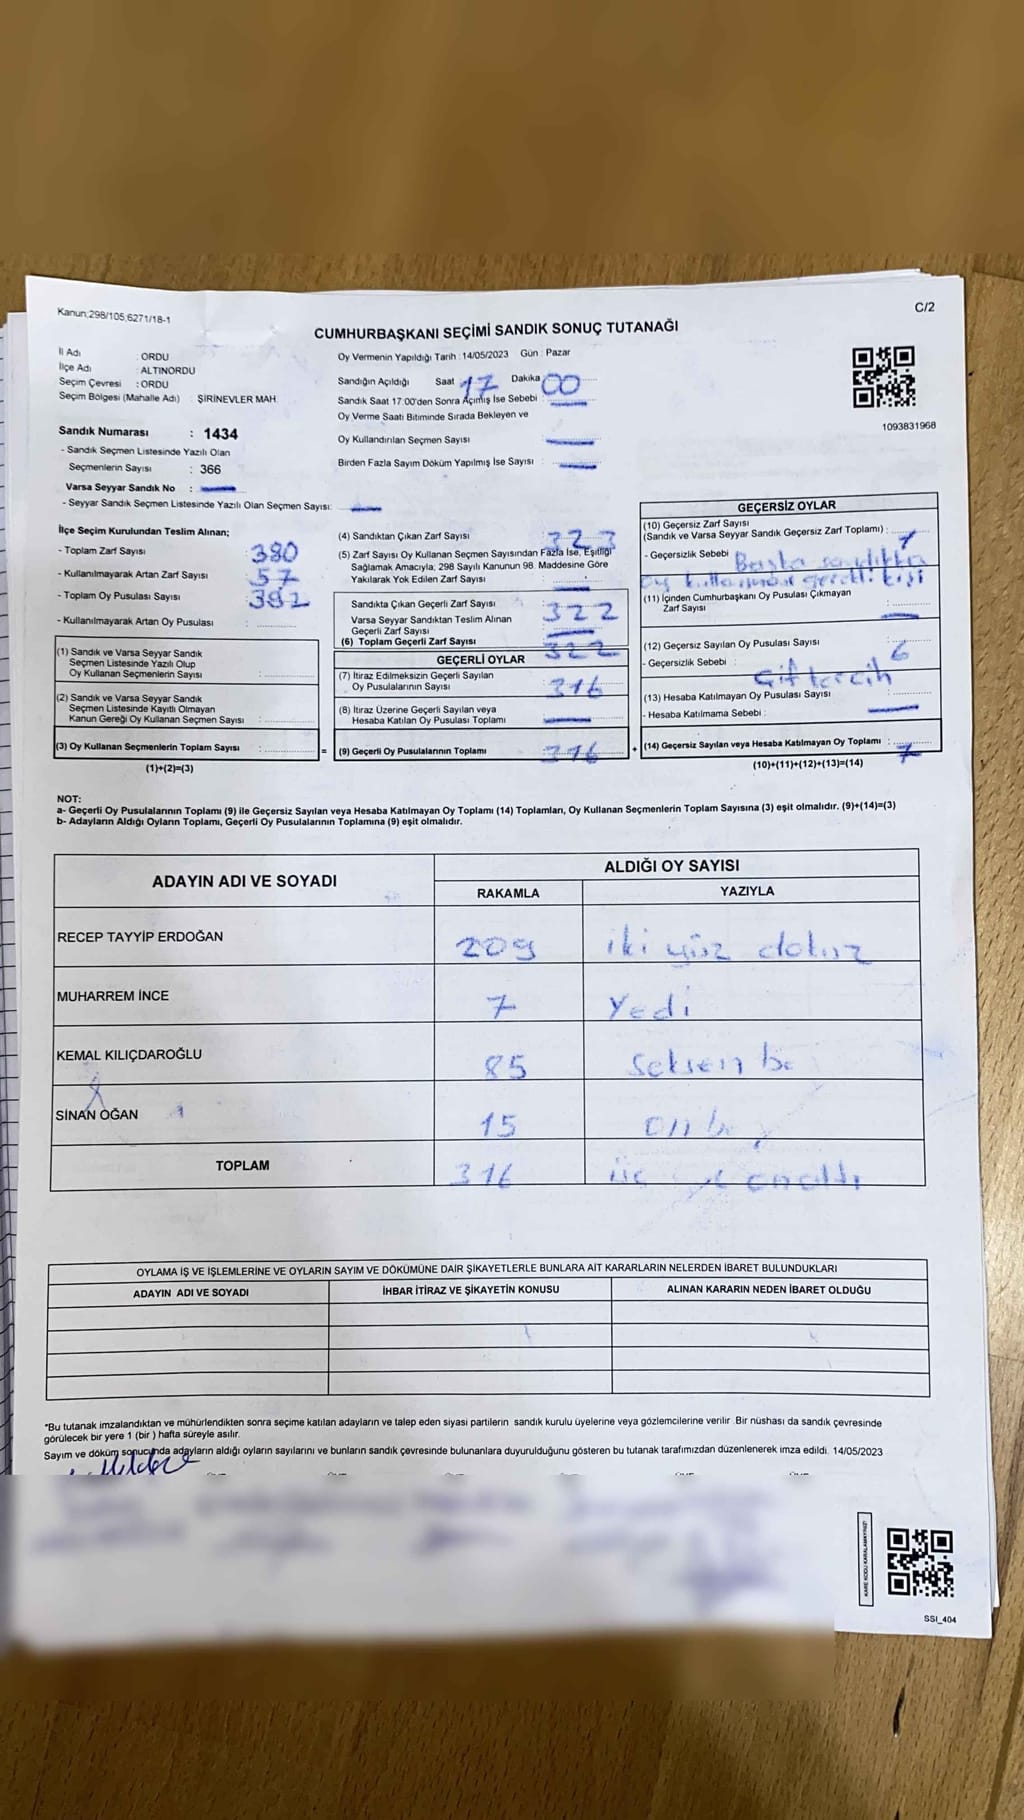 Kanun;298/105,6271/18-1
C/2
CUMHURBAŞKANI SEÇİMİ SANDIK SONUÇ TUTANAĞI
İl Adı : ORDU
İlçe Adı : ALTINORDU
Seçim Çevresi : ORDU
Seçim Bölgesi (Mahalle Adı) : ŞİRİNEVLER MAH.
Sandık Numarası : 1434
- Sandık Seçmen Listesinde Yazılı Olan
Seçmenlerin Sayısı : 366
Varsa Seyyar Sandık No :
- Seyyar Sandık Seçmen Listesinde Yazılı Olan Seçmen Sayısı:
Oy Vermenin Yapıldığı Tarih : 14/05/2023 Gün : Pazar
Sandığın Açıldığı Saat 17 Dakika 00
Sandık Saat 17:00'den Sonra Açılmış İse Sebebi :
Oy Verme Saati Bitiminde Sırada Bekleyen ve
Oy Kullandırılan Seçmen Sayısı
Birden Fazla Sayım Döküm Yapılmış İse Sayısı :
1093831968
İlçe Seçim Kurulundan Teslim Alınan;
- Toplam Zarf Sayısı : 380
- Kullanılmayarak Artan Zarf Sayısı : 57
- Toplam Oy Pusulası Sayısı : 382
- Kullanılmayarak Artan Oy Pusulası :
(1) Sandık ve Varsa Seyyar Sandık
Seçmen Listesinde Yazılı Olup
Oy Kullanan Seçmenlerin Sayısı :
(2) Sandık ve Varsa Seyyar Sandık
Seçmen Listesinde Kayıtlı Olmayan
Kanun Gereği Oy Kullanan Seçmen Sayısı :
(3) Oy Kullanan Seçmenlerin Toplam Sayısı : =
(1)+(2)=(3)
(4) Sandıktan Çıkan Zarf Sayısı : 323
(5) Zarf Sayısı Oy Kullanan Seçmen Sayısından Fazla İse, Eşitliği
Sağlamak Amacıyla, 298 Sayılı Kanunun 98. Maddesine Göre
Yakılarak Yok Edilen Zarf Sayısı :
Sandıkta Çıkan Geçerli Zarf Sayısı : 322
Varsa Seyyar Sandıktan Teslim Alınan
Geçerli Zarf Sayısı :
(6) Toplam Geçerli Zarf Sayısı : 322
GEÇERLİ OYLAR
(7) İtiraz Edilmeksizin Geçerli Sayılan
Oy Pusulalarının Sayısı : 316
(8) İtiraz Üzerine Geçerli Sayılan veya
Hesaba Katılan Oy Pusulası Toplamı :
(9) Geçerli Oy Pusulalarının Toplamı : 316 +
GEÇERSİZ OYLAR
(10) Geçersiz Zarf Sayısı
(Sandık ve Varsa Seyyar Sandık Geçersiz Zarf Toplamı) : 1
- Geçersizlik Sebebi : Başka sandıkta
oy kullanması gerekli kişi
(11) İçinden Cumhurbaşkanı Oy Pusulası Çıkmayan
Zarf Sayısı :
(12) Geçersiz Sayılan Oy Pusulası Sayısı : 6
- Geçersizlik Sebebi : Çift tercih
(13) Hesaba Katılmayan Oy Pusulası Sayısı :
- Hesaba Katılmama Sebebi :
(14) Geçersiz Sayılan veya Hesaba Katılmayan Oy Toplamı : 7
(10)+(11)+(12)+(13)=(14)
NOT:
a- Geçerli Oy Pusulalarının Toplamı (9) ile Geçersiz Sayılan veya Hesaba Katılmayan Oy Toplamı (14) Toplamları, Oy Kullanan Seçmenlerin Toplam Sayısına (3) eşit olmalıdır. (9)+(14)=(3)
b- Adayların Aldığı Oyların Toplamı, Geçerli Oy Pusulalarının Toplamına (9) eşit olmalıdır.
ADAYIN ADI VE SOYADI
ALDIĞI OY SAYISI
RAKAMLA YAZIYLA
RECEP TAYYİP ERDOĞAN 209 iki yüz dokuz
MUHARREM İNCE 7 Yedi
KEMAL KILIÇDAROĞLU 85 Seksen be
SİNAN OĞAN 15 on be
TOPLAM 316 üç onaltı
OYLAMA İŞ VE İŞLEMLERİNE VE OYLARIN SAYIM VE DÖKÜMÜNE DAİR ŞİKAYETLERLE BUNLARA AİT KARARLARIN NELERDEN İBARET BULUNDUKLARI
ADAYIN ADI VE SOYADI İHBAR İTİRAZ VE ŞİKAYETİN KONUSU ALINAN KARARIN NEDEN İBARET OLDUĞU
*Bu tutanak imzalandıktan ve mühürlendikten sonra seçime katılan adayların ve talep eden siyasi partilerin sandık kurulu üyelerine veya gözlemcilerine verilir .Bir nüshası da sandık çevresinde
görülecek bir yere 1 (bir ) hafta süreyle asılır.
Sayım ve döküm sonucunda adayların aldığı oyların sayılarını ve bunların sandık çevresinde bulunanlara duyurulduğunu gösteren bu tutanak tarafımızdan düzenlenerek imza edildi. 14/05/2023
KARE KODU KARALAMAYINIZ!
SSI_404